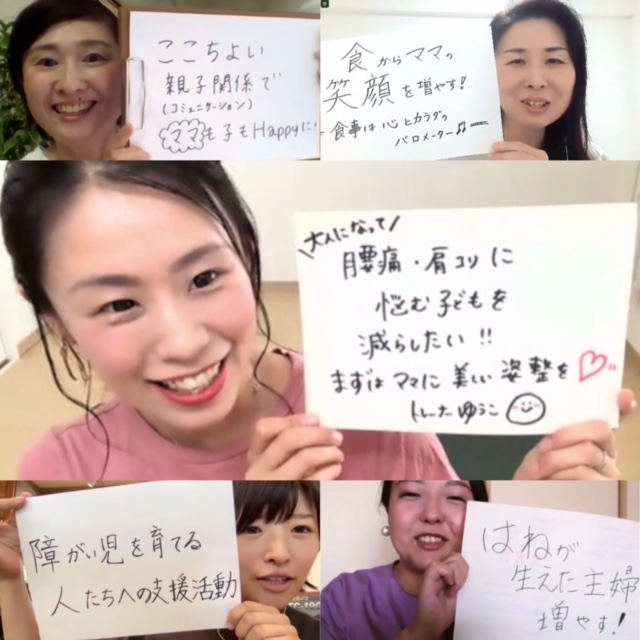 ここちよい
親子関係で
(コミュニケーション)
ママも子もHappyに!
食からママの
笑顔を増やす!
食事は心とカラダの
バロメーター♫
\大人になって/
腰痛・肩コリに
悩む子どもを
減らしたい!!
まずはママに美しい姿整を♡
トレーナーゆうこ
障がい児を育てる
人たちへの支援活動
はねが
生えた主婦
増やす!